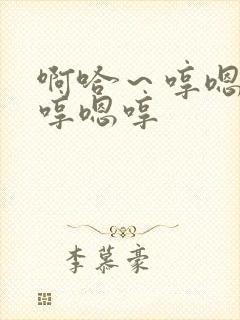 啊哈～哼嗯
哼嗯哼
李慕豪